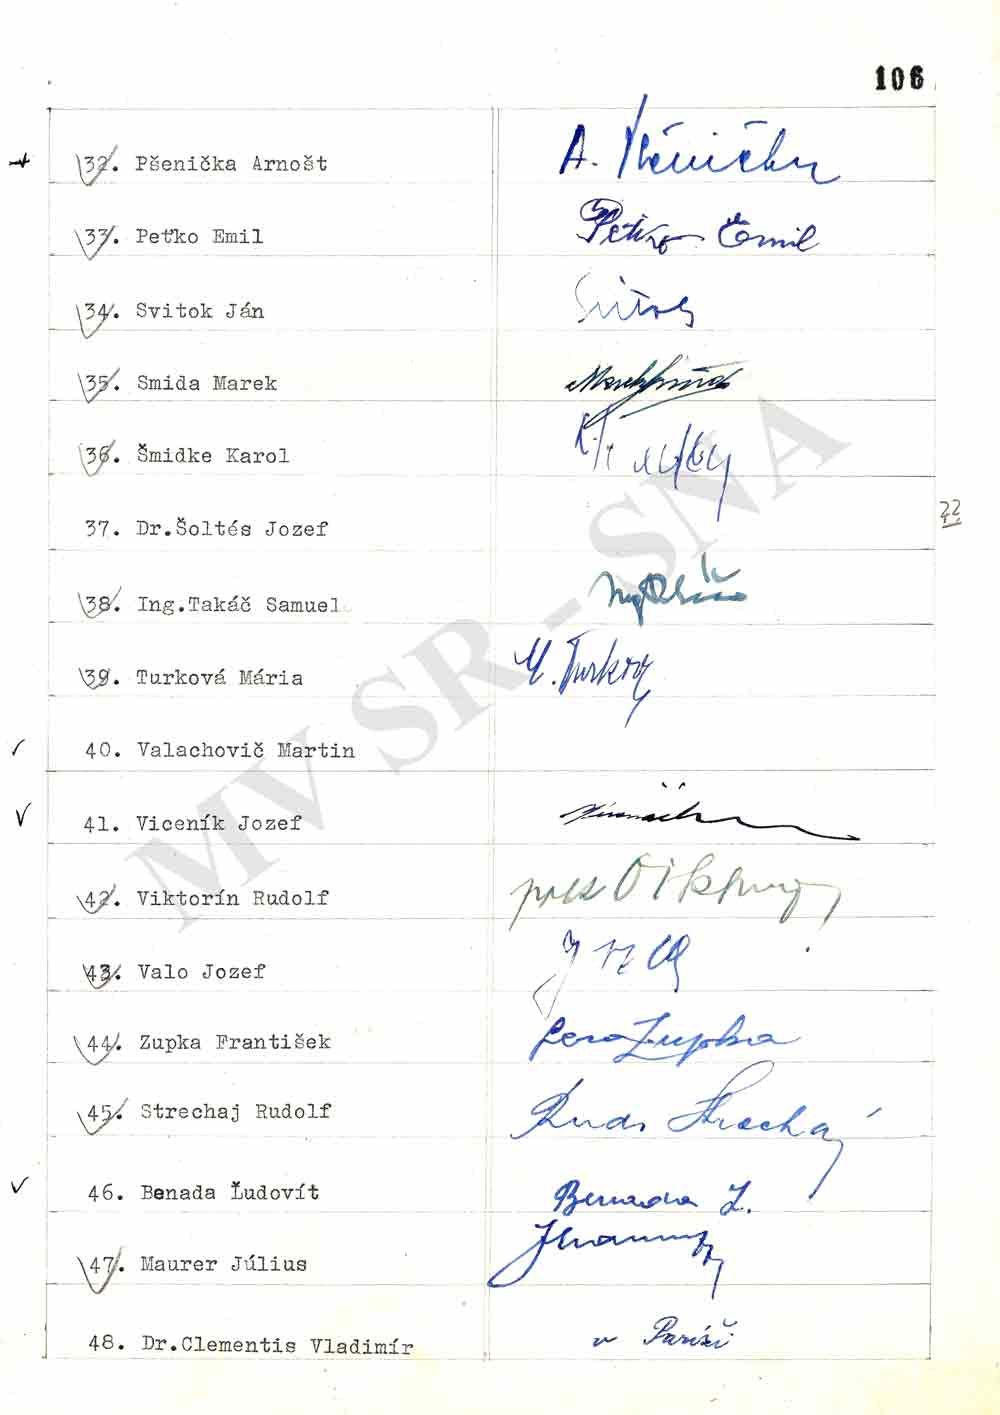 106
32. Pšenička Arnošt A. Pšenička
33. Peťko Emil Peťko Emil
34. Svitok Ján
35. Smida Marek Marek Smida
36. Šmidke Karol K.
37. Dr.Šoltés Jozef
22
38. Ing.Takáč Samuel
39. Turková Mária M. Turková
40. Valachovič Martin
41. Viceník Jozef
42. Viktorín Rudolf
43. Valo Jozef
44. Zupka František Fero Zupka
45. Strechaj Rudolf Rudo Strechaj
46. Benada Ľudovít Benada L.
47. Maurer Július
48. Dr.Clementis Vladimír v Paríži
MV SR - SNA